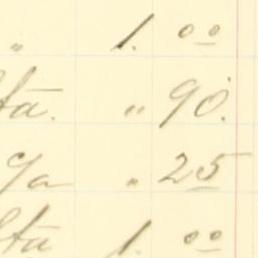 " 1. 00
ta. " 90.
c/a " 25
ta 1. 00